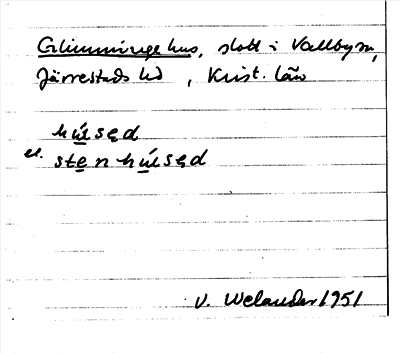 Glimmingehus, slott i Vallby sn,
Järrestads hd, Krist. län
hú̲sęd
el. ste̲nhú̲sęd
V. Welander 1951